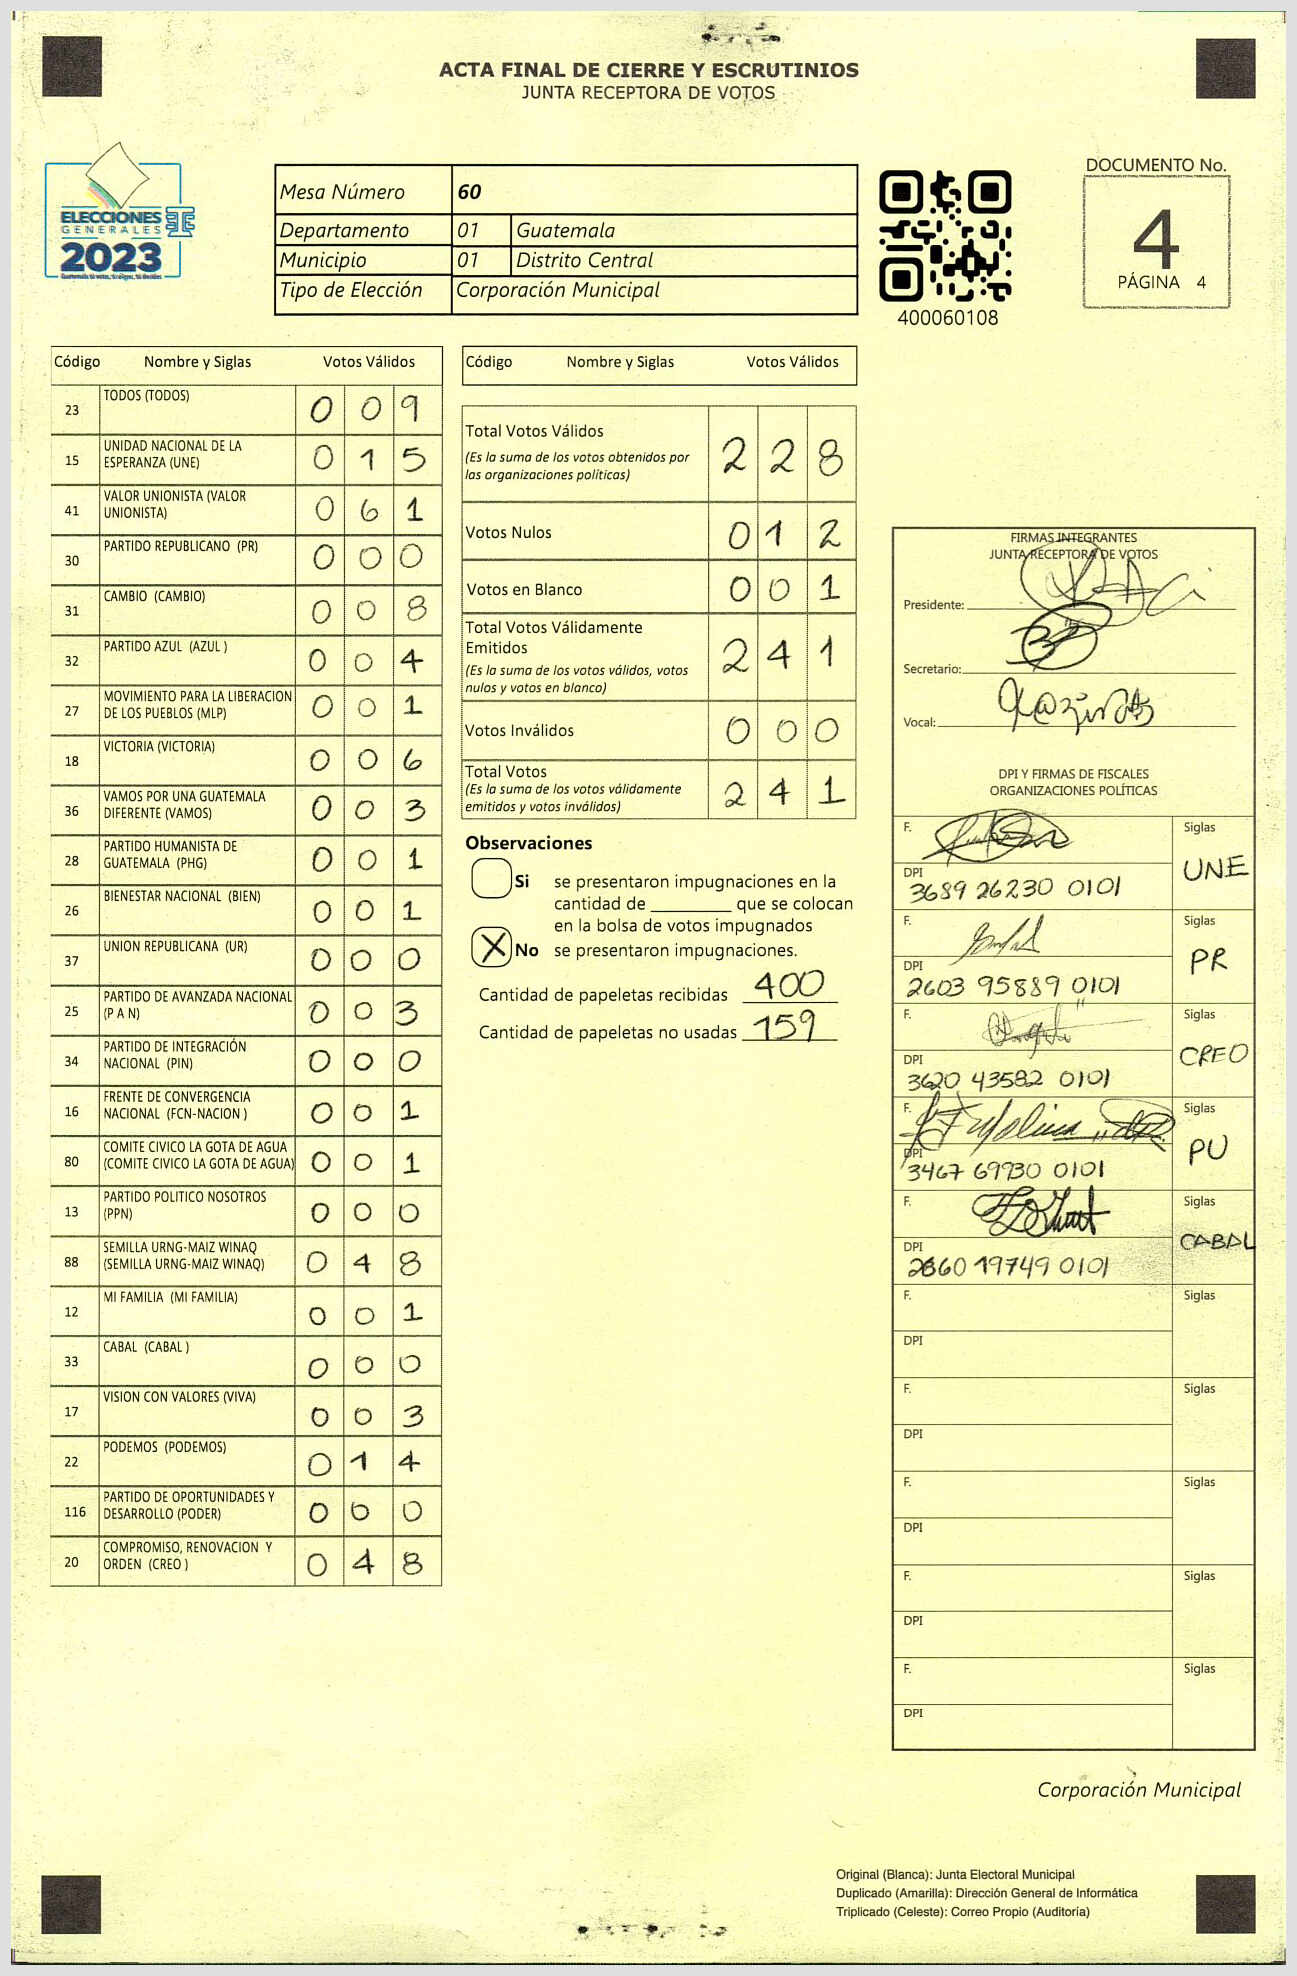 ACTA FINAL DE CIERRE Y ESCRUTINIOS
JUNTA RECEPTORA DE VOTOS
ELECCIONES
GENERALES
2023
Mesa Número 60
Departamento 01 Guatemala
Municipio 01 Distrito Central
Tipo de Elección Corporación Municipal
400060108
DOCUMENTO No.
4
PÁGINA 4
Código Nombre y Siglas Votos Válidos
23 TODOS (TODOS) 0 0 9
15 UNIDAD NACIONAL DE LA ESPERANZA (UNE) 0 1 5
41 VALOR UNIONISTA (VALOR UNIONISTA) 0 6 1
30 PARTIDO REPUBLICANO (PR) 0 0 0
31 CAMBIO (CAMBIO) 0 0 8
32 PARTIDO AZUL (AZUL ) 0 0 4
27 MOVIMIENTO PARA LA LIBERACION DE LOS PUEBLOS (MLP) 0 0 1
18 VICTORIA (VICTORIA) 0 0 6
36 VAMOS POR UNA GUATEMALA DIFERENTE (VAMOS) 0 0 3
28 PARTIDO HUMANISTA DE GUATEMALA (PHG) 0 0 1
26 BIENESTAR NACIONAL (BIEN) 0 0 1
37 UNION REPUBLICANA (UR) 0 0 0
25 PARTIDO DE AVANZADA NACIONAL (P A N) 0 0 3
34 PARTIDO DE INTEGRACIÓN NACIONAL (PIN) 0 0 0
16 FRENTE DE CONVERGENCIA NACIONAL (FCN-NACION ) 0 0 1
80 COMITE CIVICO LA GOTA DE AGUA (COMITE CIVICO LA GOTA DE AGUA) 0 0 1
13 PARTIDO POLITICO NOSOTROS (PPN) 0 0 0
88 SEMILLA URNG-MAIZ WINAQ (SEMILLA URNG-MAIZ WINAQ) 0 4 8
12 MI FAMILIA (MI FAMILIA) 0 0 1
33 CABAL (CABAL ) 0 0 0
17 VISION CON VALORES (VIVA) 0 0 3
22 PODEMOS (PODEMOS) 0 1 4
116 PARTIDO DE OPORTUNIDADES Y DESARROLLO (PODER) 0 0 0
20 COMPROMISO, RENOVACION Y ORDEN (CREO ) 0 4 8
Código Nombre y Siglas Votos Válidos
Total Votos Válidos 2 2 8
(Es la suma de los votos obtenidos por
las organizaciones políticas)
Votos Nulos 0 1 2
Votos en Blanco 0 0 1
Total Votos Válidamente
Emitidos 2 4 1
(Es la suma de los votos válidos, votos
nulos y votos en blanco)
Votos Inválidos 0 0 0
Total Votos 2 4 1
(Es la suma de los votos válidamente
emitidos y votos inválidos)
Observaciones
Si se presentaron impugnaciones en la
cantidad de ________ que se colocan
en la bolsa de votos impugnados
X No se presentaron impugnaciones.
Cantidad de papeletas recibidas 400
Cantidad de papeletas no usadas 159
FIRMAS INTEGRANTES
JUNTA RECEPTORA DE VOTOS
Presidente:
Secretario:
Vocal:
DPI Y FIRMAS DE FISCALES
ORGANIZACIONES POLÍTICAS
F. Siglas UNE
DPI 3689 26230 0101
F. Siglas PR
DPI 2603 95889 0101
F. Siglas CREO
DPI 3620 43582 0101
F. Siglas PU
DPI 3467 69930 0101
F. Siglas CABAL
DPI 2860 19749 0101
F. Siglas
DPI
F. Siglas
DPI
F. Siglas
DPI
F. Siglas
DPI
F. Siglas
DPI
Corporación Municipal
Original (Blanca): Junta Electoral Municipal
Duplicado (Amarilla): Dirección General de Informática
Triplicado (Celeste): Correo Propio (Auditoría)